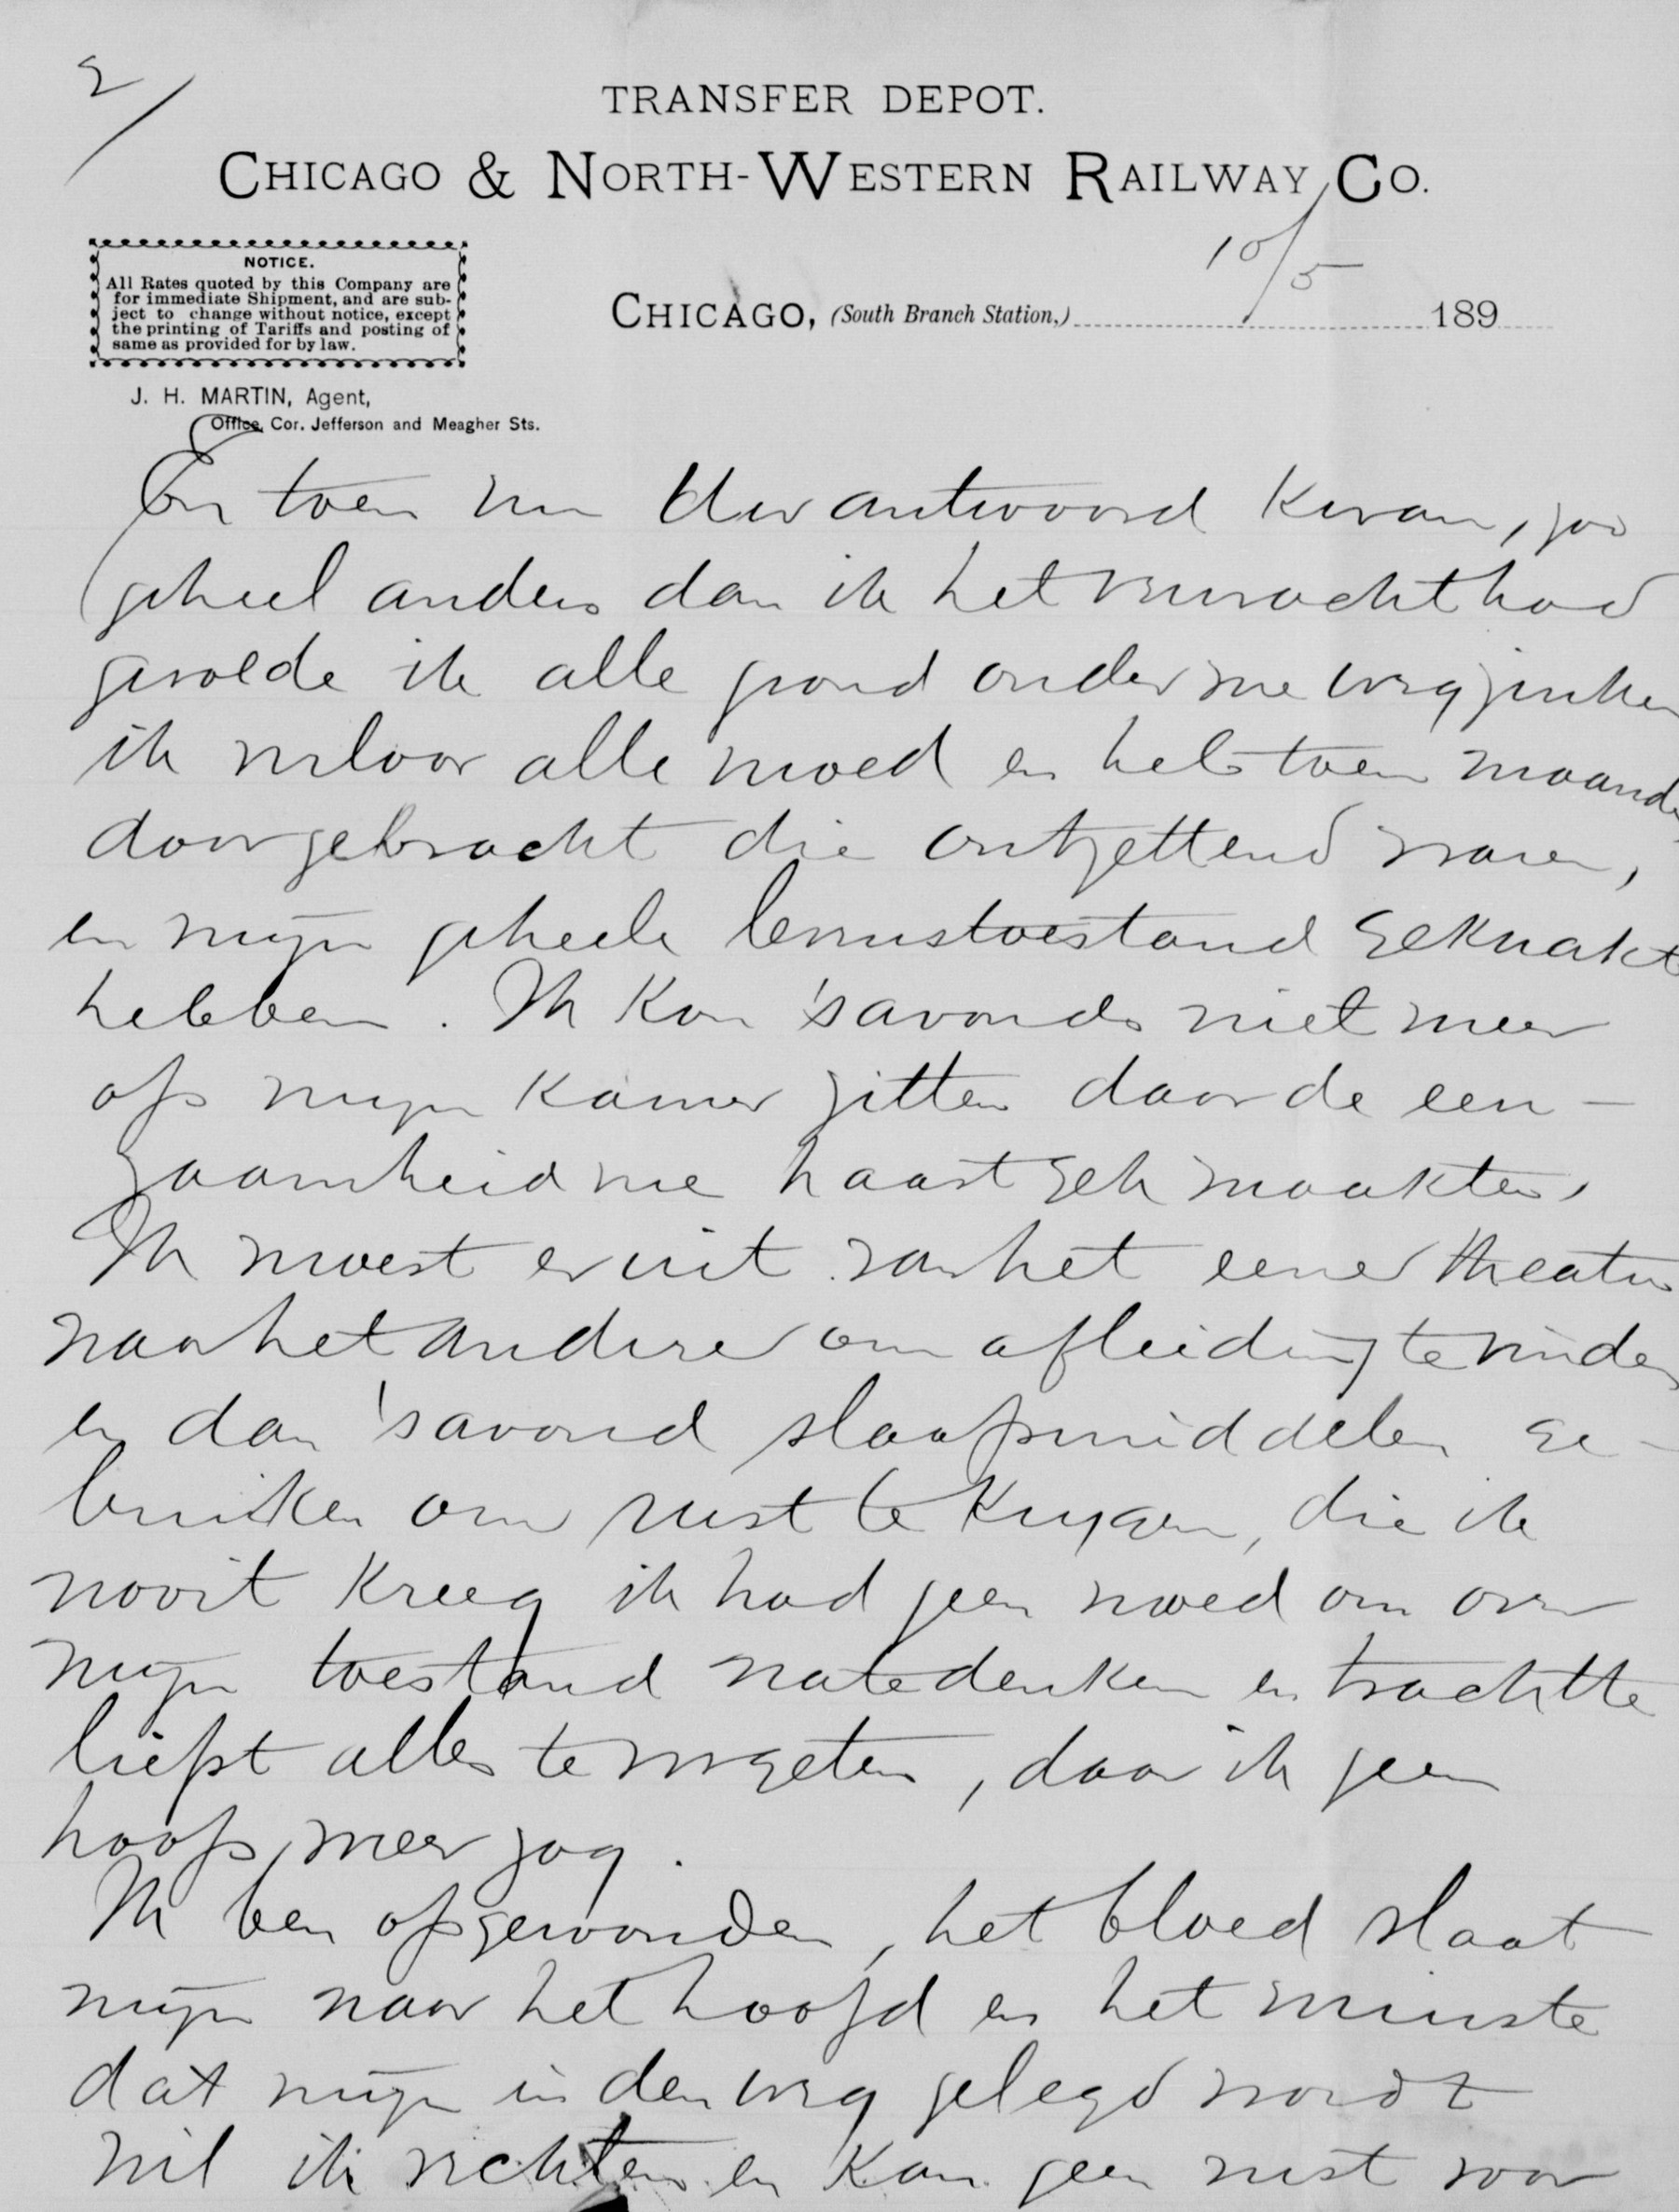 2/
TRANSFER DEPOT.
CHICAGO & NORTH-WESTERN RAILWAY CO.
NOTICE.
All Rates quoted by this Company are
for immediate Shipment, and are sub-
ject to change without notice, except
the printing of Tariffs and posting of
same as provided for by law.
10/5
CHICAGO, (South Branch Station,) 189
J. H. MARTIN, Agent,
Office, Cor. Jefferson and Meagher Sts.
En toen nu Uw antwoord kwam, zoo
geheel anders dan ik het verwacht had
gevoelde ik alle grond onder me wegzinken
ik verloor alle moed en heb toen maanden
doorgebracht die ontzettend waren,
en mijn geheele toestand geknakt
hebben. Ik kon 's avonds niet meer
op mijn kamer zitten daar de een-
zaamheid me haast gek maakten,
Ik moest er uit van het eene theater
naar het andere om afleiding te vinden
en dan 's avond slaapmiddelen ge-
bruiken om rust te krijgen, die ik
nooit kreeg ik had geen moed om over
mijn toestand na te denken en trachtte
liefst alles te vergeten, daar ik geen
hoop meer zag.
Ik ben opgewonden, het bloed slaat
mijn naar het hoofd en het minste
dat mijn in den weg gelegd wordt
wil ik vechten en kan geen rust voor